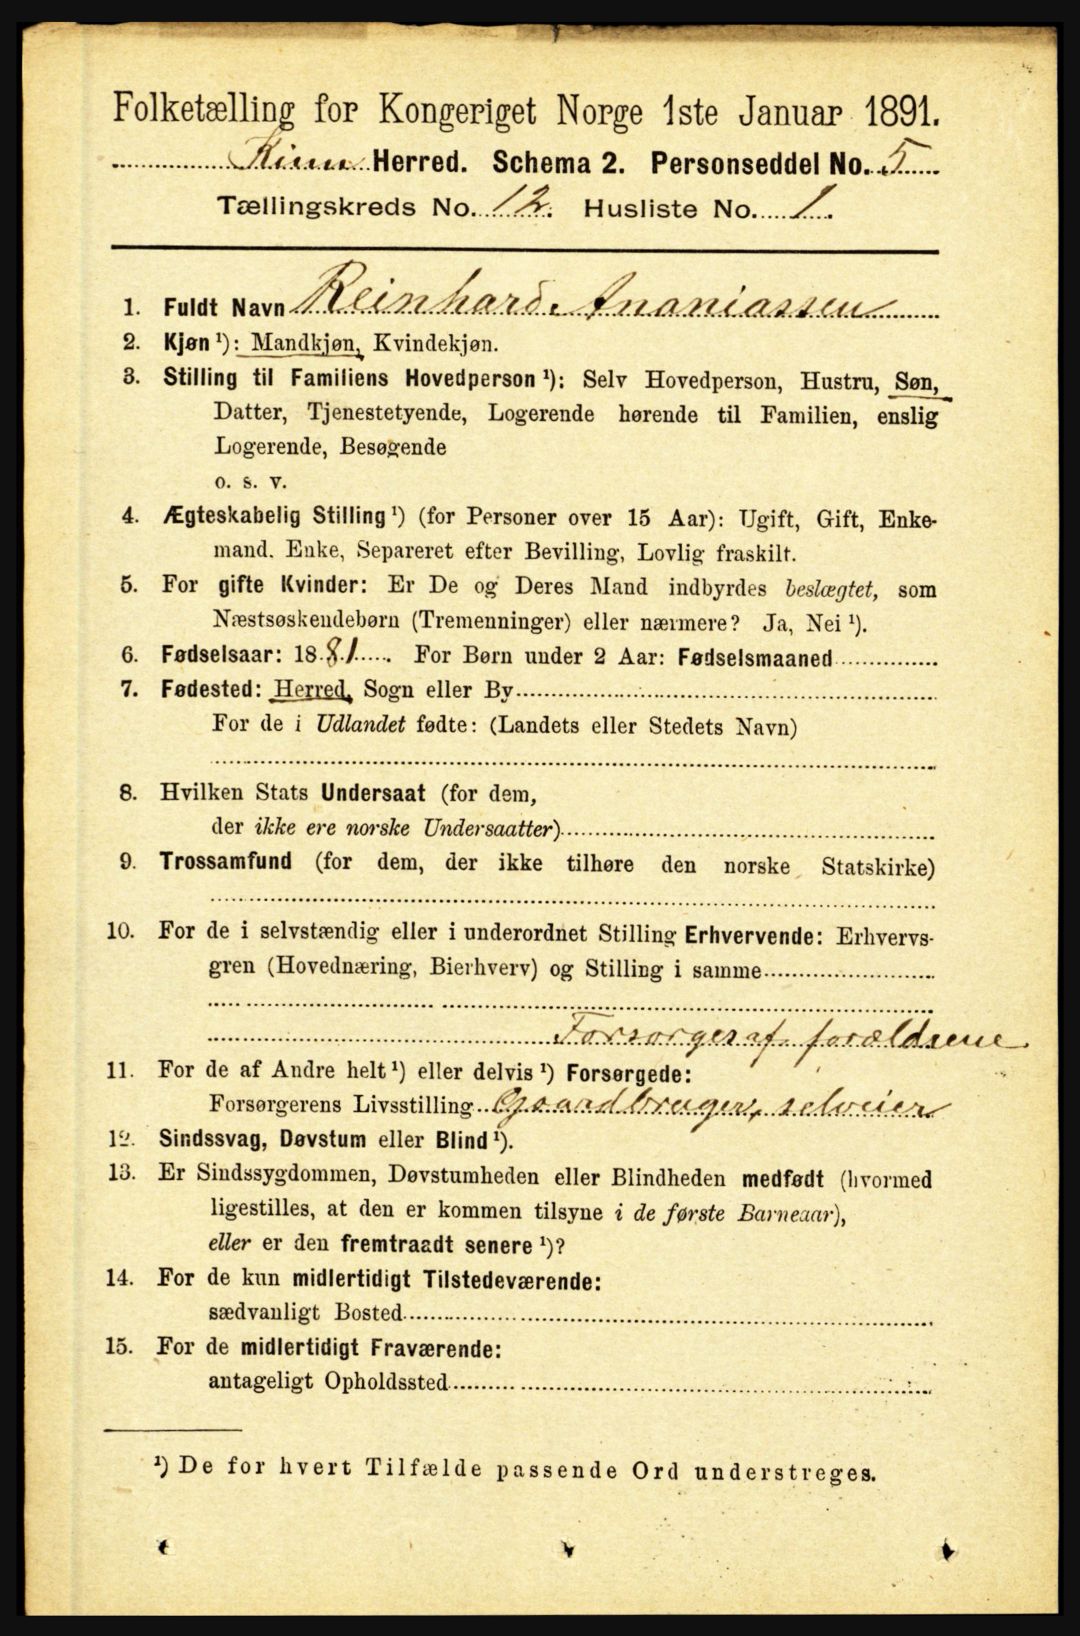 Folketælling for Kongeriget Norge 1ste Januar 1891.
Kinn Herred. Schema 2. Personseddel No. 5
Tællingskreds No. 12. Husliste No. 1.
1. Fuldt Navn Reinhard Ananiassen
2. Kjøn ¹): Mandkjøn, Kvindekjøn.
3. Stilling til Familiens Hovedperson ¹): Selv Hovedperson, Hustru, Søn,
Datter, Tjenestetyende, Logerende hørende til Familien, enslig
Logerende, Besøgende
o. s. v.
4. Ægteskabelig Stilling ¹) (for Personer over 15 Aar): Ugift, Gift, Enke-
mand. Enke, Separeret efter Bevilling, Lovlig fraskilt.
5. For gifte Kvinder: Er De og Deres Mand indbyrdes beslægtet, som
Næstsøskendebørn (Tremenninger) eller nærmere? Ja, Nei ¹).
6. Fødselsaar: 1881. For Børn under 2 Aar: Fødselsmaaned
7. Fødested: Herred, Sogn eller By
For de i Udlandet fødte: (Landets eller Stedets Navn)
8. Hvilken Stats Undersaat (for dem,
der ikke ere norske Undersaatter)
9. Trossamfund (for dem, der ikke tilhøre den norske Statskirke)
10. For de i selvstændig eller i underordnet Stilling Erhvervende: Erhvervs-
gren (Hovednæring, Bierhverv) og Stilling i samme
Forsorges af forældrene
11. For de af Andre helt ¹) eller delvis ¹) Forsørgede:
Forsørgerens Livsstilling Gaardbruger, selveier
12. Sindssvag, Døvstum eller Blind ¹).
13. Er Sindssygdommen, Døvstumheden eller Blindheden medfødt (hvormed
ligestilles, at den er kommen tilsyne i de første Barneaar),
eller er den fremtraadt senere ¹)?
14. For de kun midlertidigt Tilstedeværende:
sædvanligt Bosted
15. For de midlertidigt Fraværende:
antageligt Opholdssted
¹) De for hvert Tilfælde passende Ord understreges.